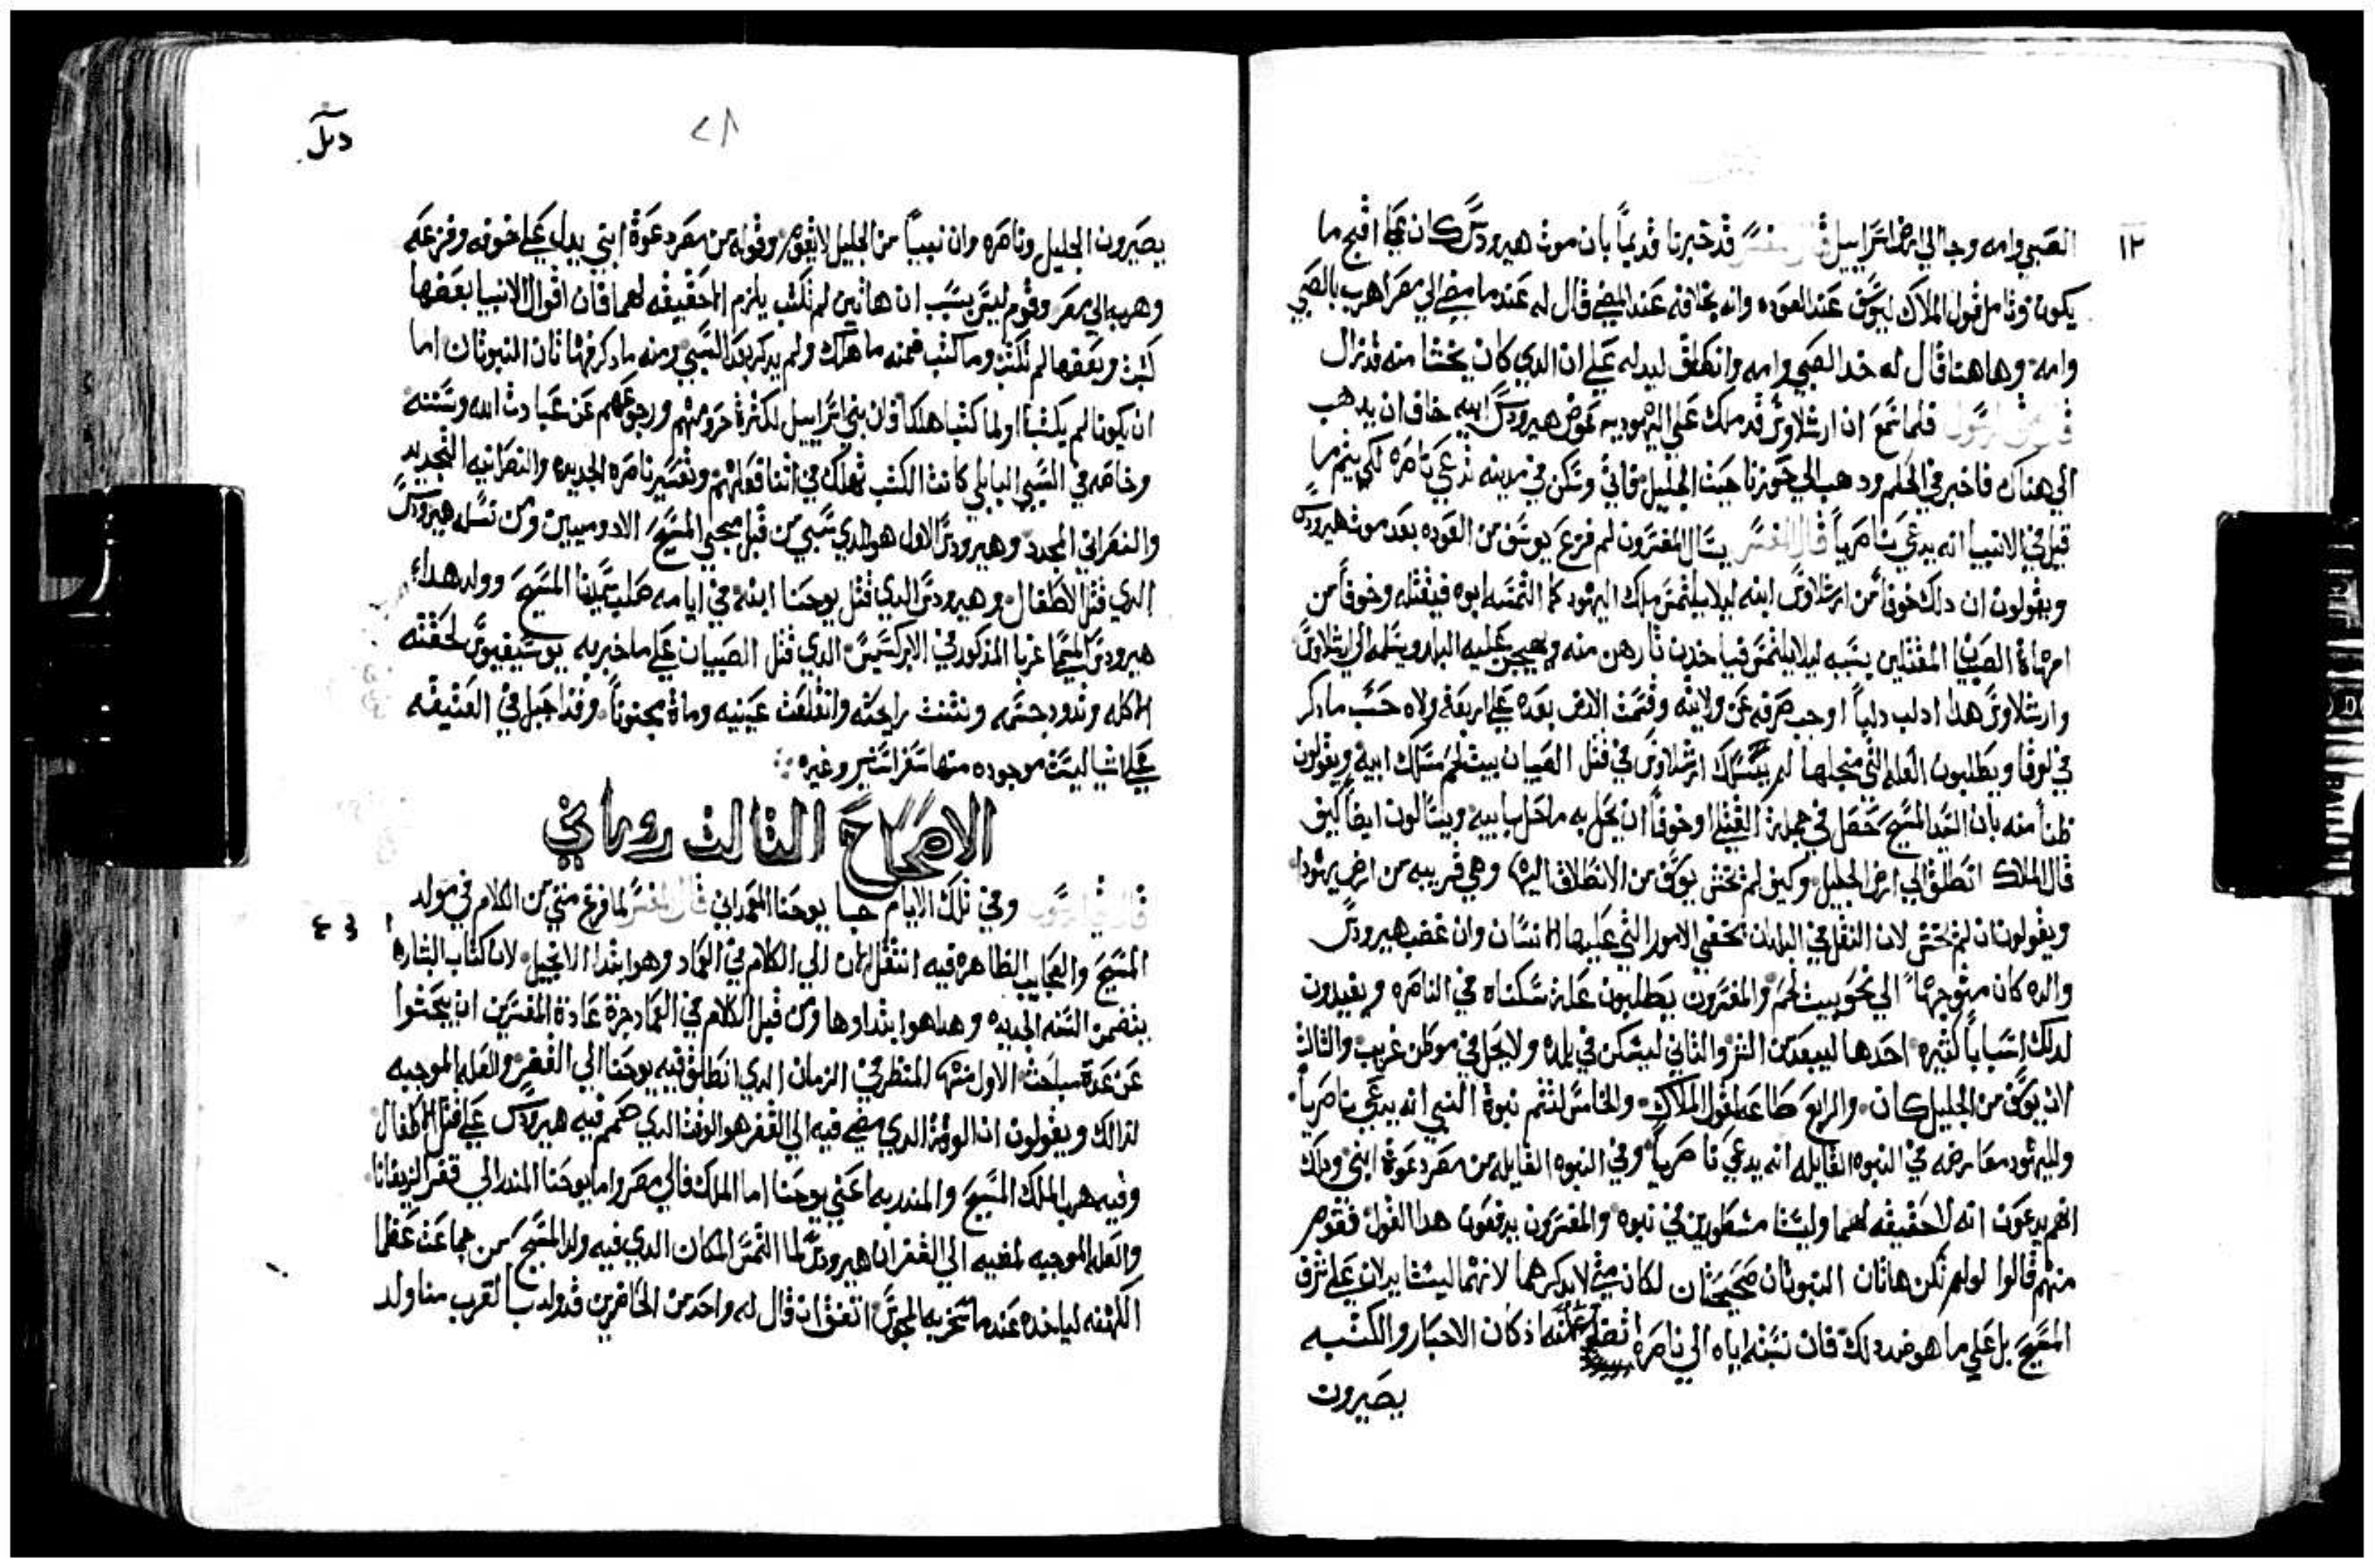 ١٢
الصبي وامه وجا الي ارض اسراييل قال المفسر قد خبرنا قديماً بان موت هيرودس كان بما اقبح ما
يكون وتامل قول الملاك ليوسف عند العوده وانه بخلافه عند المضي قال له عندما مضي الي مصر اهرب بالصبي
وامه وهاهنا قال له خد الصبي وامه وانطلق ليدله علي ان الدي كان يخشا منه قد زال
فلما سمع ان ارشلاوس قد ملك علي اليهوديه عوض هيرودس ابيه خاف ان يدهب
الي هناك فاخبر في الحلم ودهب الي حوزنا حيث الجليل فاتي وسكن في مدينه تدعي ناصره لكي يتم ما
قيل في الانبيا انه يدعي ناصرياً قال المفسر يسال المفسرون لم فزع يوسف من العوده بعد موت هيرودس
ويقولون ان دلك خوفاً من ارشلاوس ابنه ليلا يلتمس ملك اليهود كما التمسه ابوه فيقتله وخوفاً من
امهاة الصبيان المقتلين بسببه ليلا يلتمس فياخدن تارهن منه ويهيجن عليه البلد ويسلمه الي ارشلاوس
وارشلاوس هدا ادنب دنباً اوجب صرفه عن ولايته وقسمت الارض بعده علي اربعة ولاه حسب ما دكر
في لوقا ويطلبون العله التي من اجلها لم يتمسك ارشلاوس في قتل الصبيان ببيت لحم مسلك ابيه ويقولون
ظناً منه بان السيد المسيح حصل في جملة القتلي او خوفاً ان يحل به ما حل بابيه ويسالون ايضاً كيف
قال الملاك انطلق الي ارض الجليل وكيف لم يخش يوسف من الانطلاق اليها وهي قريبه من ارض يهودا
ويقولون ان لم يخش لان النقل في البلدان تخفي الامور التي عليها الانسان وان غضب هيرودس
والده كان متوجهاً الي نحو بيت لحم والمفسرون يطلبون علة سكناه في الناصره ويفيدون
لدلك اسباباً كثيره احدها ليبعد من الشر والتاني ليسكن في بلده ولا يحل في موطن غريب والتالت
لان يوسف من الجليل كان والرابع طاعه لقول الملاك والخامس لتتم نبوة النبي انه يدعي ناصرياً
ولليهود معارضه في النبوه القايله انه يدعي ناصرياً وفي النبوه القايله من مصر دعوة ابني ودلك
انهم يدعون انه لا حقيقه لهما وليستا مسطورتين في نبوه والمفسرون يدفعون هدا القول فقوم
منهم قالوا لو لم تكن هاتان النبوتان صحيحتان لكان متي لا يدكرهما لانهما ليستا يدلان علي شرف
المسيح بل علي ما هو ضد دلك فان نسبته اياه الي ناصره اد كان الاحبار والكتبه
يصيرون
يصيرون الجليل وناصره وان نبياً من الجليل لا يقوم وقوله من مصر دعوة ابني يدل علي خوفه وفزعه
وهربه الي مصر وقوم ليس بسبب ان هاتين لم تكتب يلزم الا حقيقه لهما فان اقوال الانبيا بعضها
كتبت وبعضها لم تكتب وما كتب فمنه ما هلك ولم يدكر بعد السبي ومنه ما دكر فهاتان النبوتان اما
ان يكونا لم يكتبا او لما كتبا هلكا فان بني اسراييل لكثرة حروبهم ورجوعهم عن عبادت الله وسننه
وخاصه في السبي البابلي كانت الكتب تهلك في اتنا فعالهم وتفسير ناصره الجديده والنصرانيه التجديد
والنصراني المجدد وهيرودس الاول هو الدي سبي من قبل مجي المسيح الادوميين ومن نسله هيرودس
الدي قتل الاطفال وهيرودس الدي قتل يوحنا ابنه في ايامه صلب سيدنا المسيح وولد هدا
هيرودس المسما غربا المذكور في الابركسيس الدي قتل الصبيان علي ما خبر به يوسيفيوس لحقته
الاكله وتدود جسمه ونتنت رايحته وانقلعت عينيه وماة مجنوناً
علي اشيا ليست موجوده منها سفر استير وغيره
الاصحاح التالت روماني
وفي تلك الايام جا يوحنا المعمداني قال المفسر لما فرغ متي من الكلام في مولد
المسيح والعجايب الظاهره فيه انتقل الان الي الكلام في العماد وهو ابتدا الانجيل لان كتاب البشاره
يتضمن السنه الجديده وهدا هو ابتداوها ومن قبل الكلام في العماد جرة عادة المفسرين ان يبحثوا
عن عدة مباحث الاول منها المنظر في الزمان الدي انطلق فيه يوحنا الي القفر والعله الموجبه
لدالك ويقولون ان الوقت الدي مضي فيه الي القفر هو الوقت الدي صمم فيه هيرودس علي قتل الاطفال
وفيه هرب الملك المسيح والمندر به اعني يوحنا اما الملك فالي مصر واما يوحنا المندر الي قفر
والعله الموجبه لمضيه الي القفر ان هيرودس لما التمس المكان الدي فيه ولد المسيح من جماعت عظما
الكهنه لياخده عندما سخر به المجوس اتفق ان قال له واحد من الحاضرين قد ولد بالقرب منا ولد